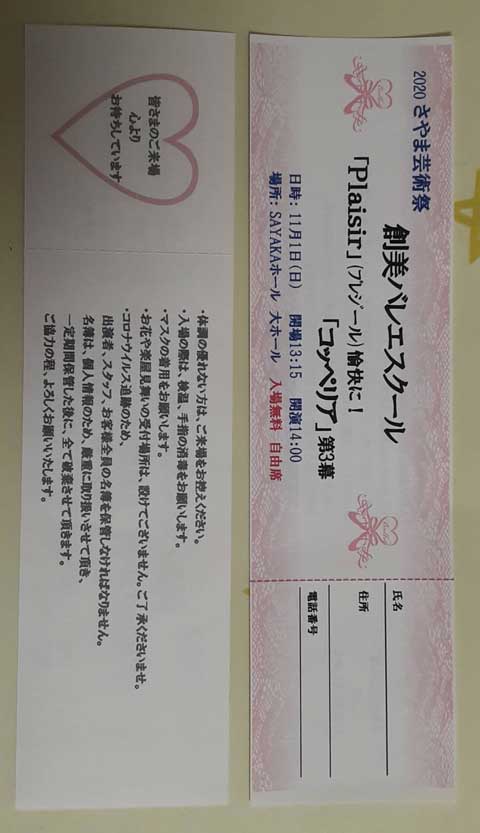 2020 さやま芸術祭
創美バレエスクール
「Plaisir」(プレジール) 愉快に！
「コッペリア」第3幕
日時: 11月1日(日) 開場13:15 開演14:00
場所: SAYAKAホール 大ホール 入場無料 自由席
氏名
住所
電話番号
皆さまのご来場
心より
お待ちしています
・体調の優れない方は、ご来場をお控えください。
・入場の際は、検温、手指の消毒をお願いします。
・マスクの着用をお願いします。
・お花や楽屋見舞いの受付場所は、設けてございません。ご了承くださいませ。
・コロナウイルス追跡のため、
出演者、スタッフ、お客様全員の名簿を保管しなければなりません。
名簿は、個人情報のため、厳重に取り扱いさせて頂き、
一定期間保管した後に、全て破棄させて頂きます。
ご協力の程、よろしくお願いいたします。